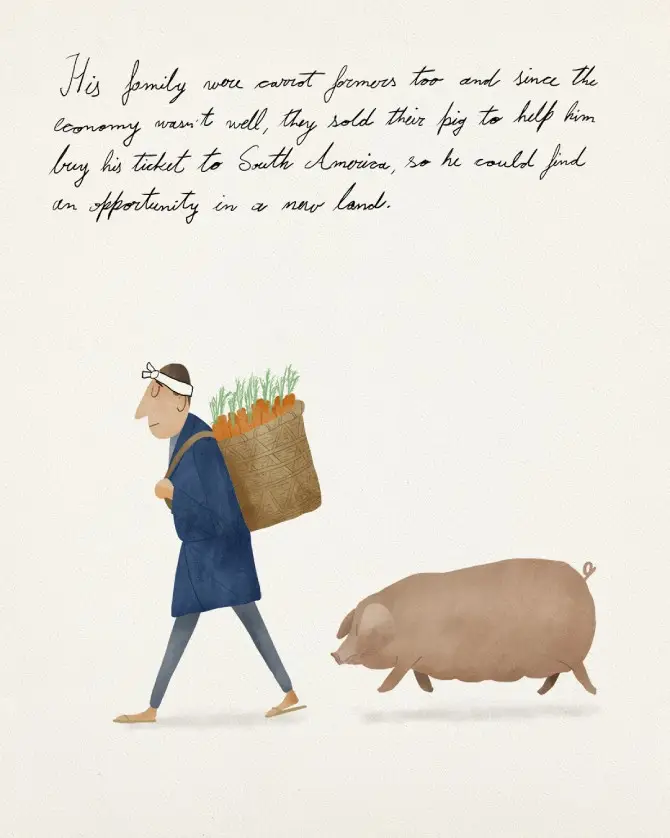 His family were carrot farmers too and since the
economy wasn't well, they sold their pig to help him
buy his ticket to South America, so he could find
an opportunity in a new land.